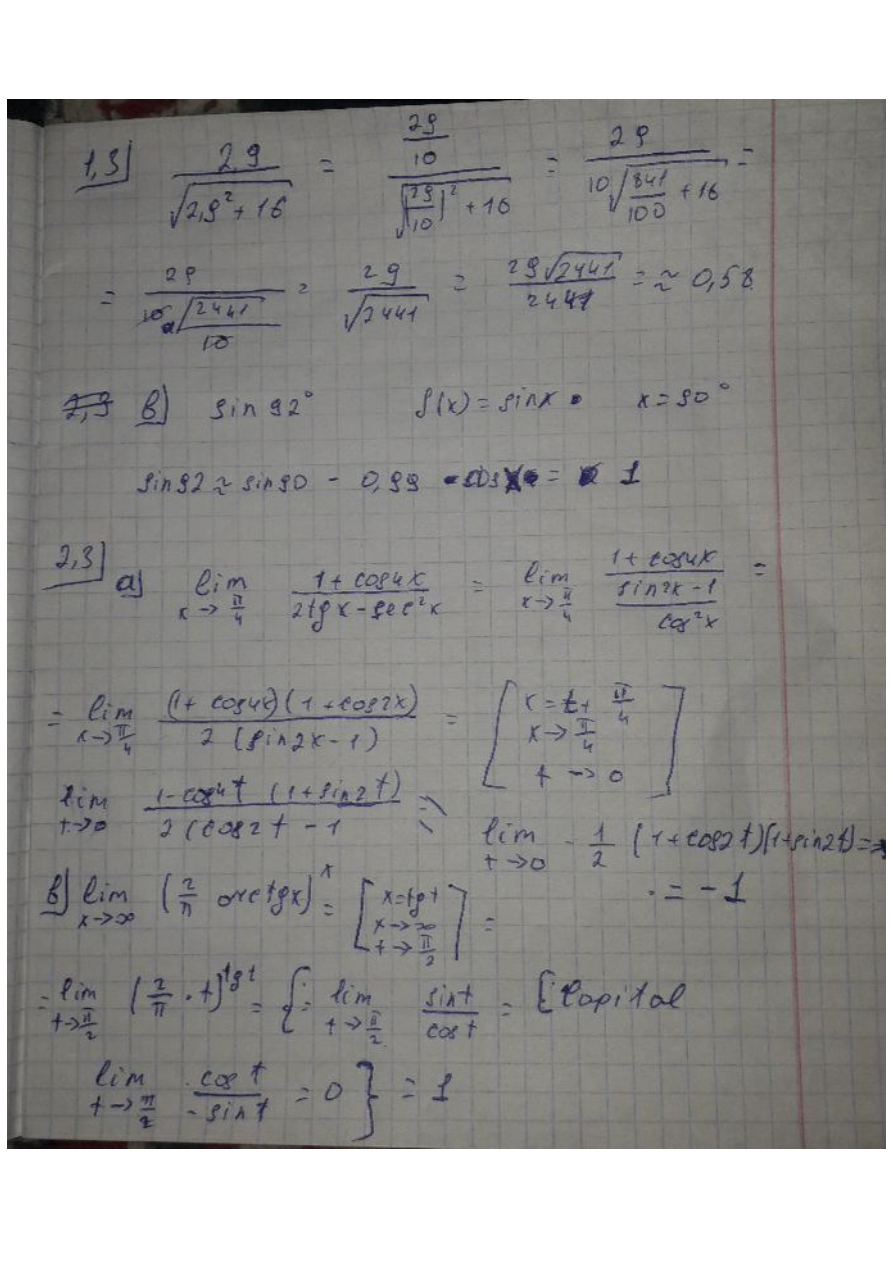 1,9) 2,9/√(2,9² + 16) = (29/10)/√((29/10)² + 16) = 29/(10√(841/100 + 16)) =
= 29/(10 √2441/10) = 29/√2441 = 29√2441/2441 = ≈ 0,58
в) sin 92° f(x) = sinx x = 90°
sin92 ≈ sin90 - 0,99 = 1
2,9) a) lim x→π/4 (1 + cos4x)/(2tgx - sec²x) = lim x→π/4 (1 + cos4x)/((sin2x - 1)/cos²x) =
= lim x→π/4 (1 + cos4x)(1 + cos2x)/(2 (sin2x - 1)) = [x = t + π/4 x→π/4 t→0]
lim t→0 (1 - cos4t (1 + sin2t))/(2 (cos2t - 1) = lim t→0 - 1/2 (1 + cos2t)(1 + sin2t) =
= -1
в) lim x→∞ (2/π arctgx)^x = [x = tgt x→∞ t→π/2] =
= lim t→π/2 (2/π · t)^tgt = {= lim t→π/2 sint/cost = [Lopital
lim t→π/2 cost/-sint = 0} = 1